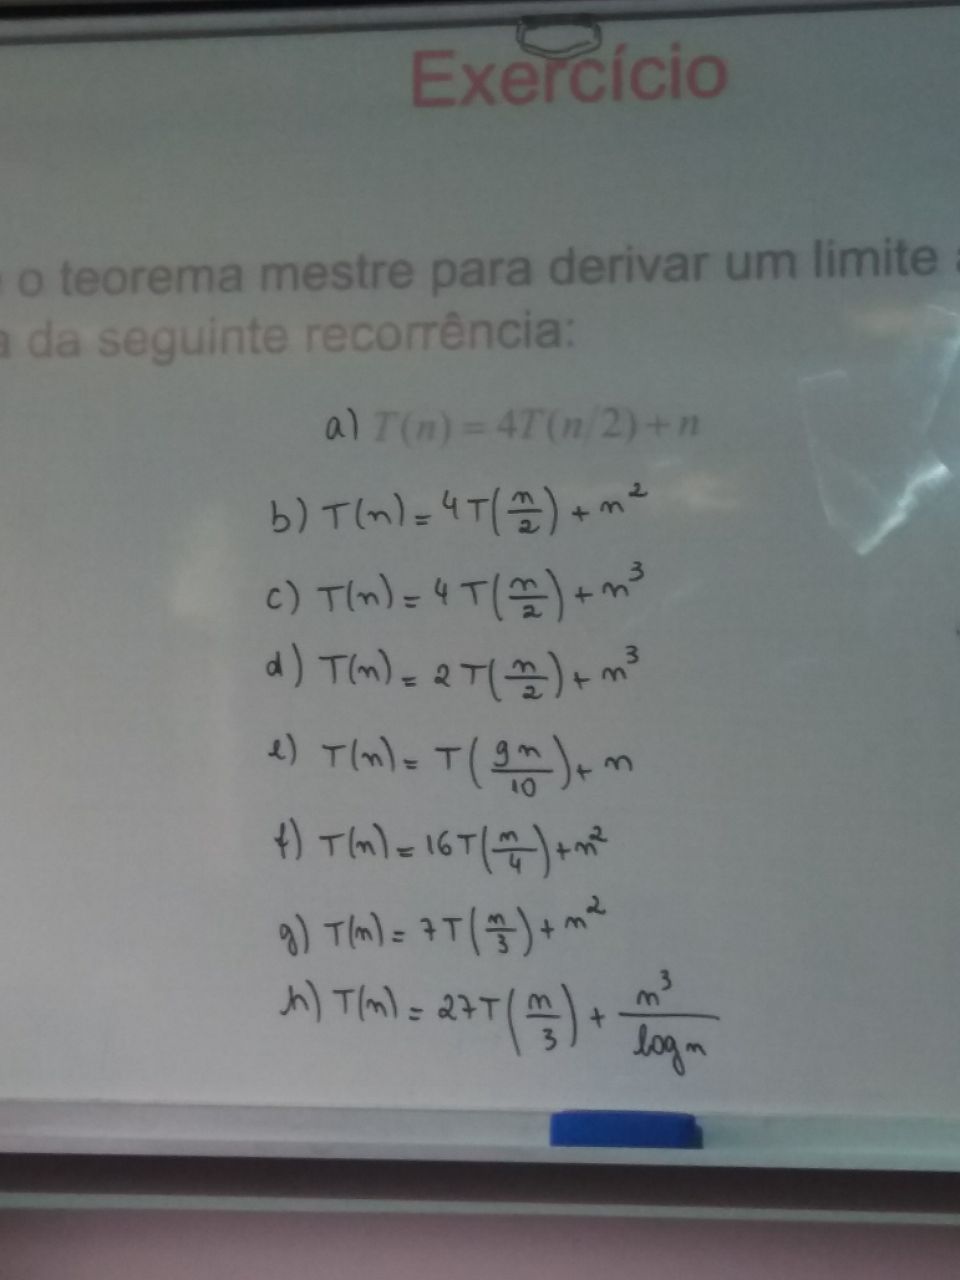 Exercício
o teorema mestre para derivar um limite
a da seguinte recorrência:
a) T(n) = 4T(n/2) + n
b) T(n) = 4T(n/2) + n²
c) T(n) = 4T(n/2) + n³
d) T(n) = 2T(n/2) + n³
e) T(n) = T(9n/10) + n
f) T(n) = 16T(n/4) + n²
g) T(n) = 7T(n/3) + n²
h) T(n) = 27T(n/3) + n³/log n